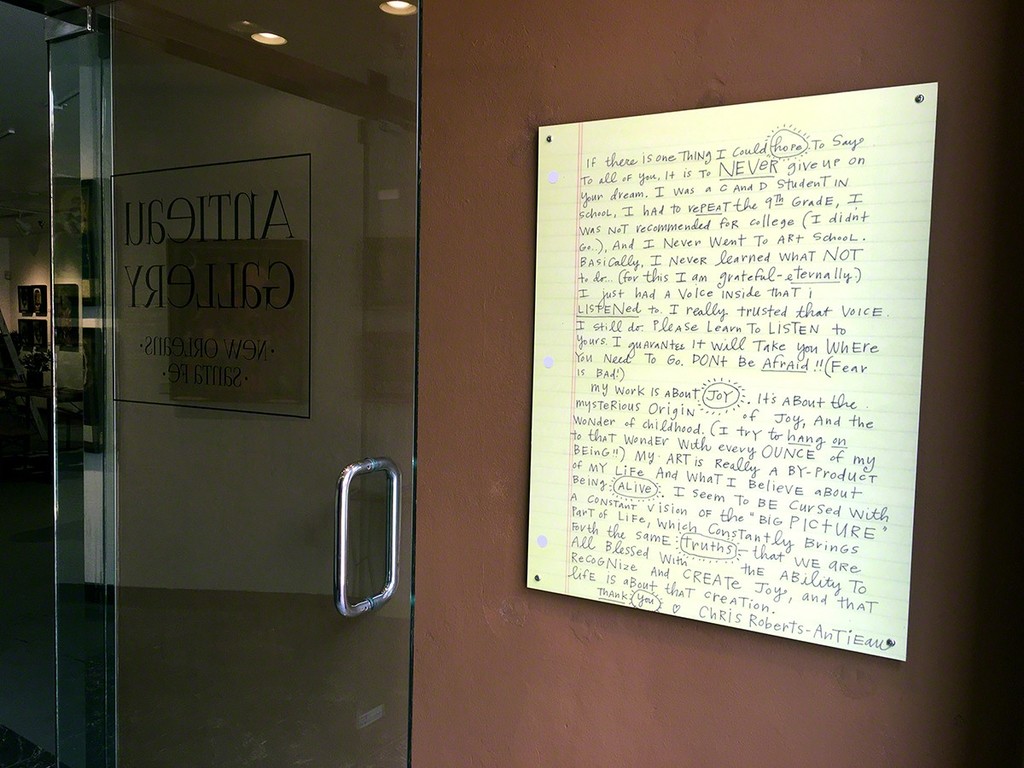 Antieau
Gallery
·New Orleans·
·Santa Fe·
If there is one Thing I Could hope To Say
To all of you, it is To NEVER give up on
your dream. I was a C and D Student in
School, I had to rePEAT the 9th Grade, I
was not recommended for college (I didnt
Go.), And I Never Went To Art School.
Basically, I Never learned what NOT
to do... (for this I am grateful-eternally.)
I just had a Voice inside that i
LISTENed to. I really trusted that VOICE.
I still do. Please Learn To LISTEN to
yours. I guarantee It will Take you Where
You Need To Go. Dont Be Afraid!! (Fear
is Bad!)
my work is about JOY. It's about the
mysterious Origin of Joy, And the
wonder of childhood. (I try to hang on
to that wonder with every OUNCE of my
BEing!!) My Art is Really A BY-Product
of My Life And What I Believe about
Being ALIVE. I seem To BE Cursed With
A constant vision of the "BIG PICTURE"
Part of Life, which Constantly Brings
Forth the same: Truths - that WE are
All Blessed With the Ability To
Recognize And CREATE Joy, and that
life is about that creation.
Thank You ♡ Chris Roberts-Antieau